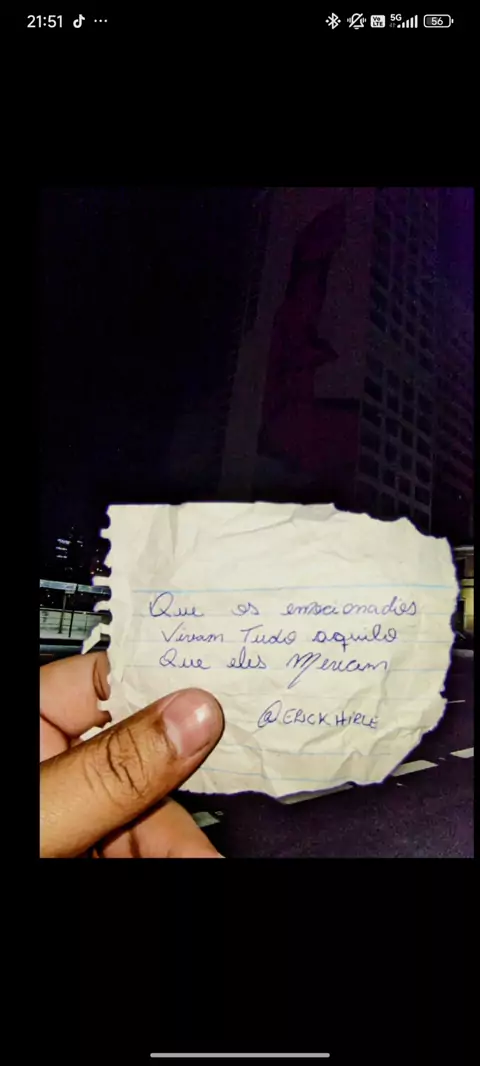 21:51 56
5G
Vo LTE
Que os emocionados
Vivam Tudo aquilo
Que eles Merecam
@ERICKHIRLE